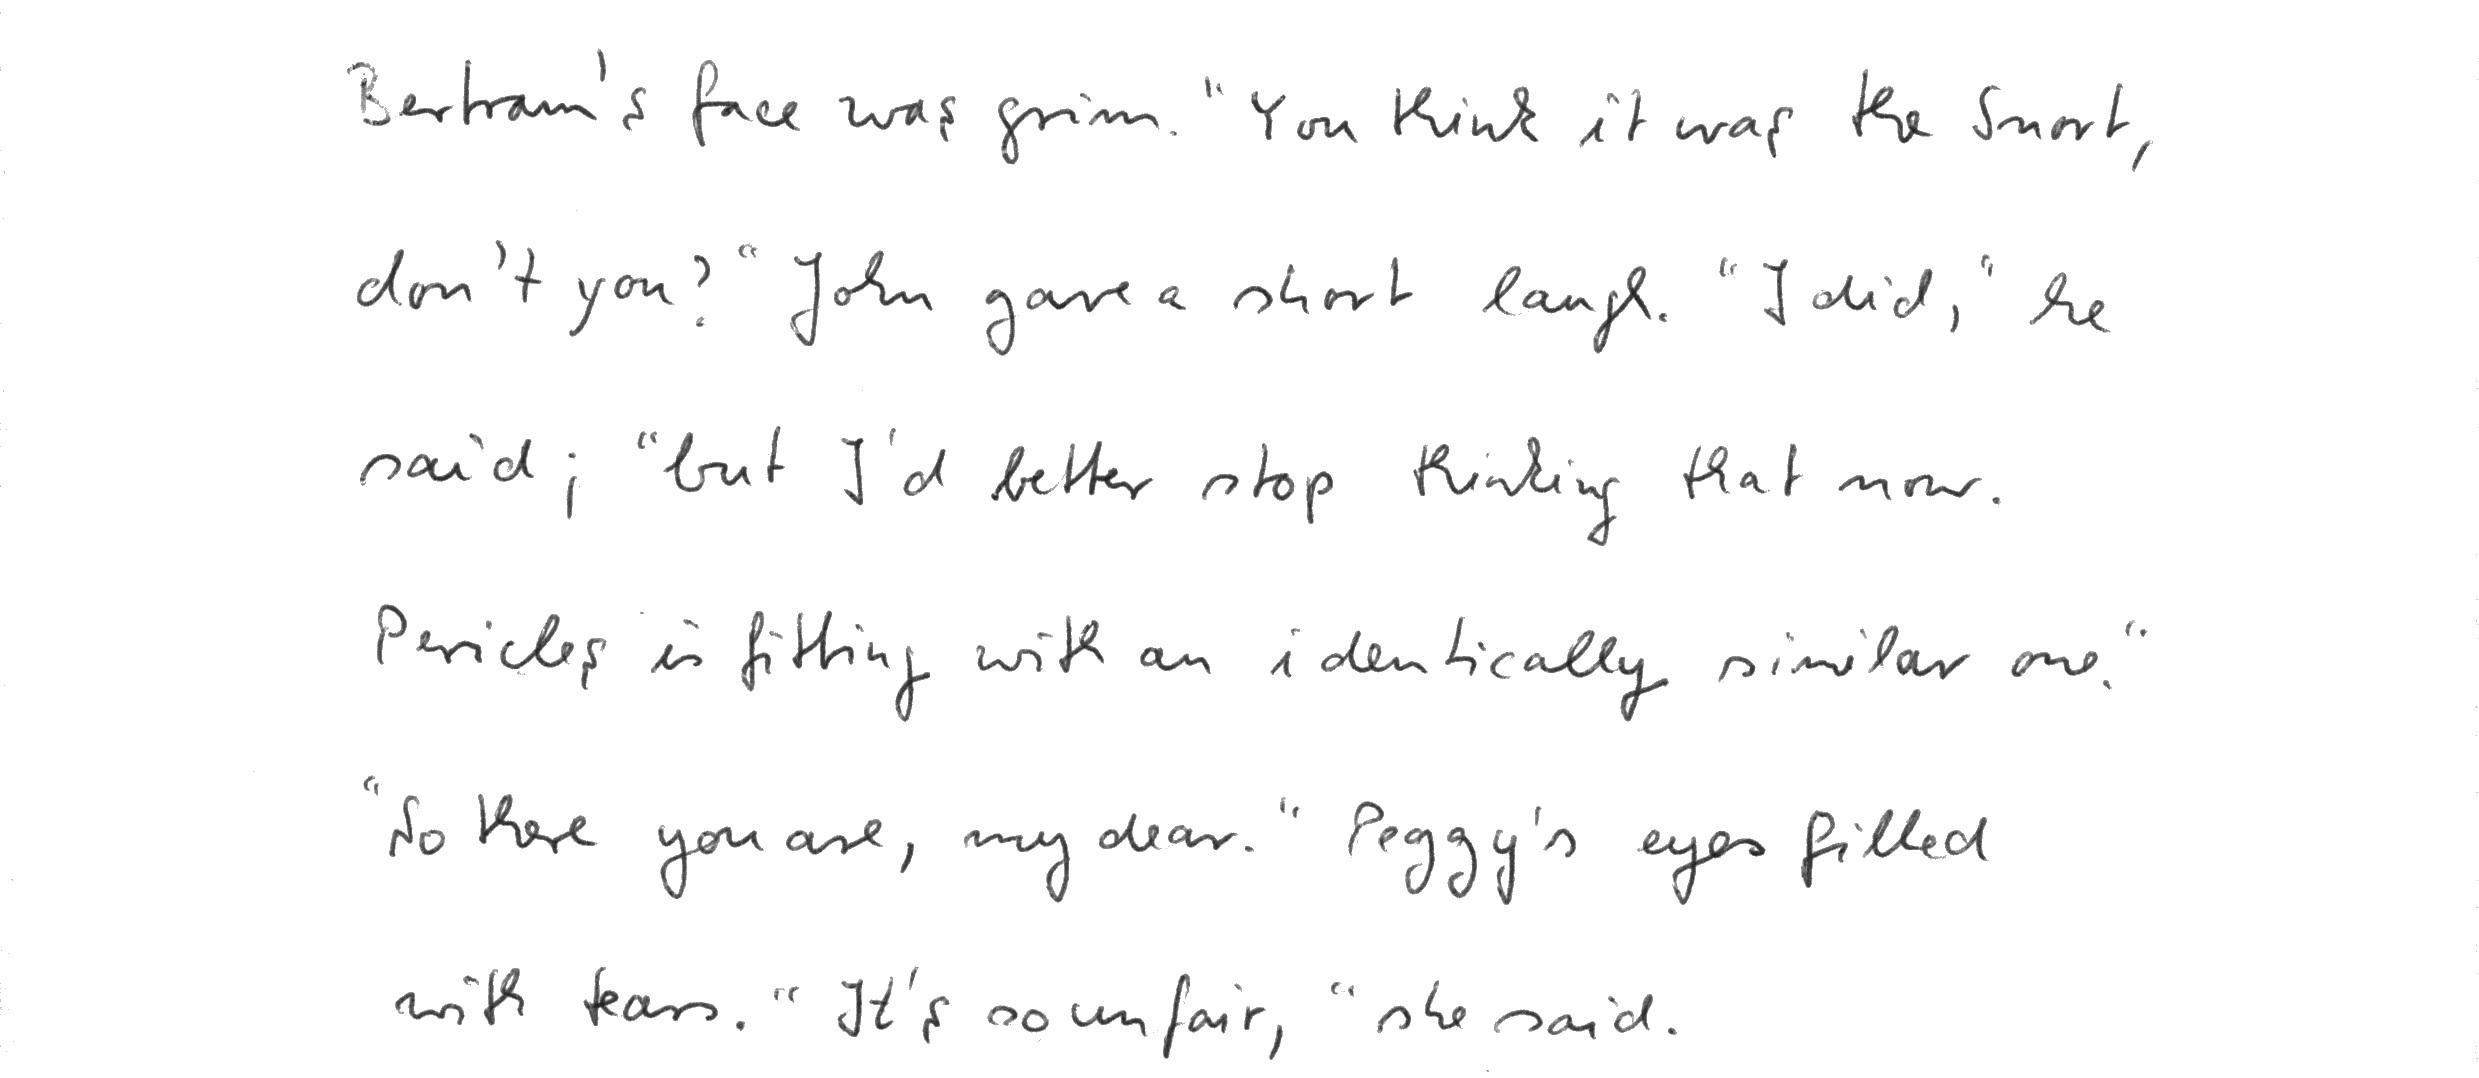 Bertram's face was grim. "You think it was the Snort,
don't you?" John gave a short laugh. "I did," he
said; "but I'd better stop thinking that now.
Pericles is fitting with an identically similar one."
"So there you are, my dear." Peggy's eyes filled
with tears. "It's so unfair," she said.